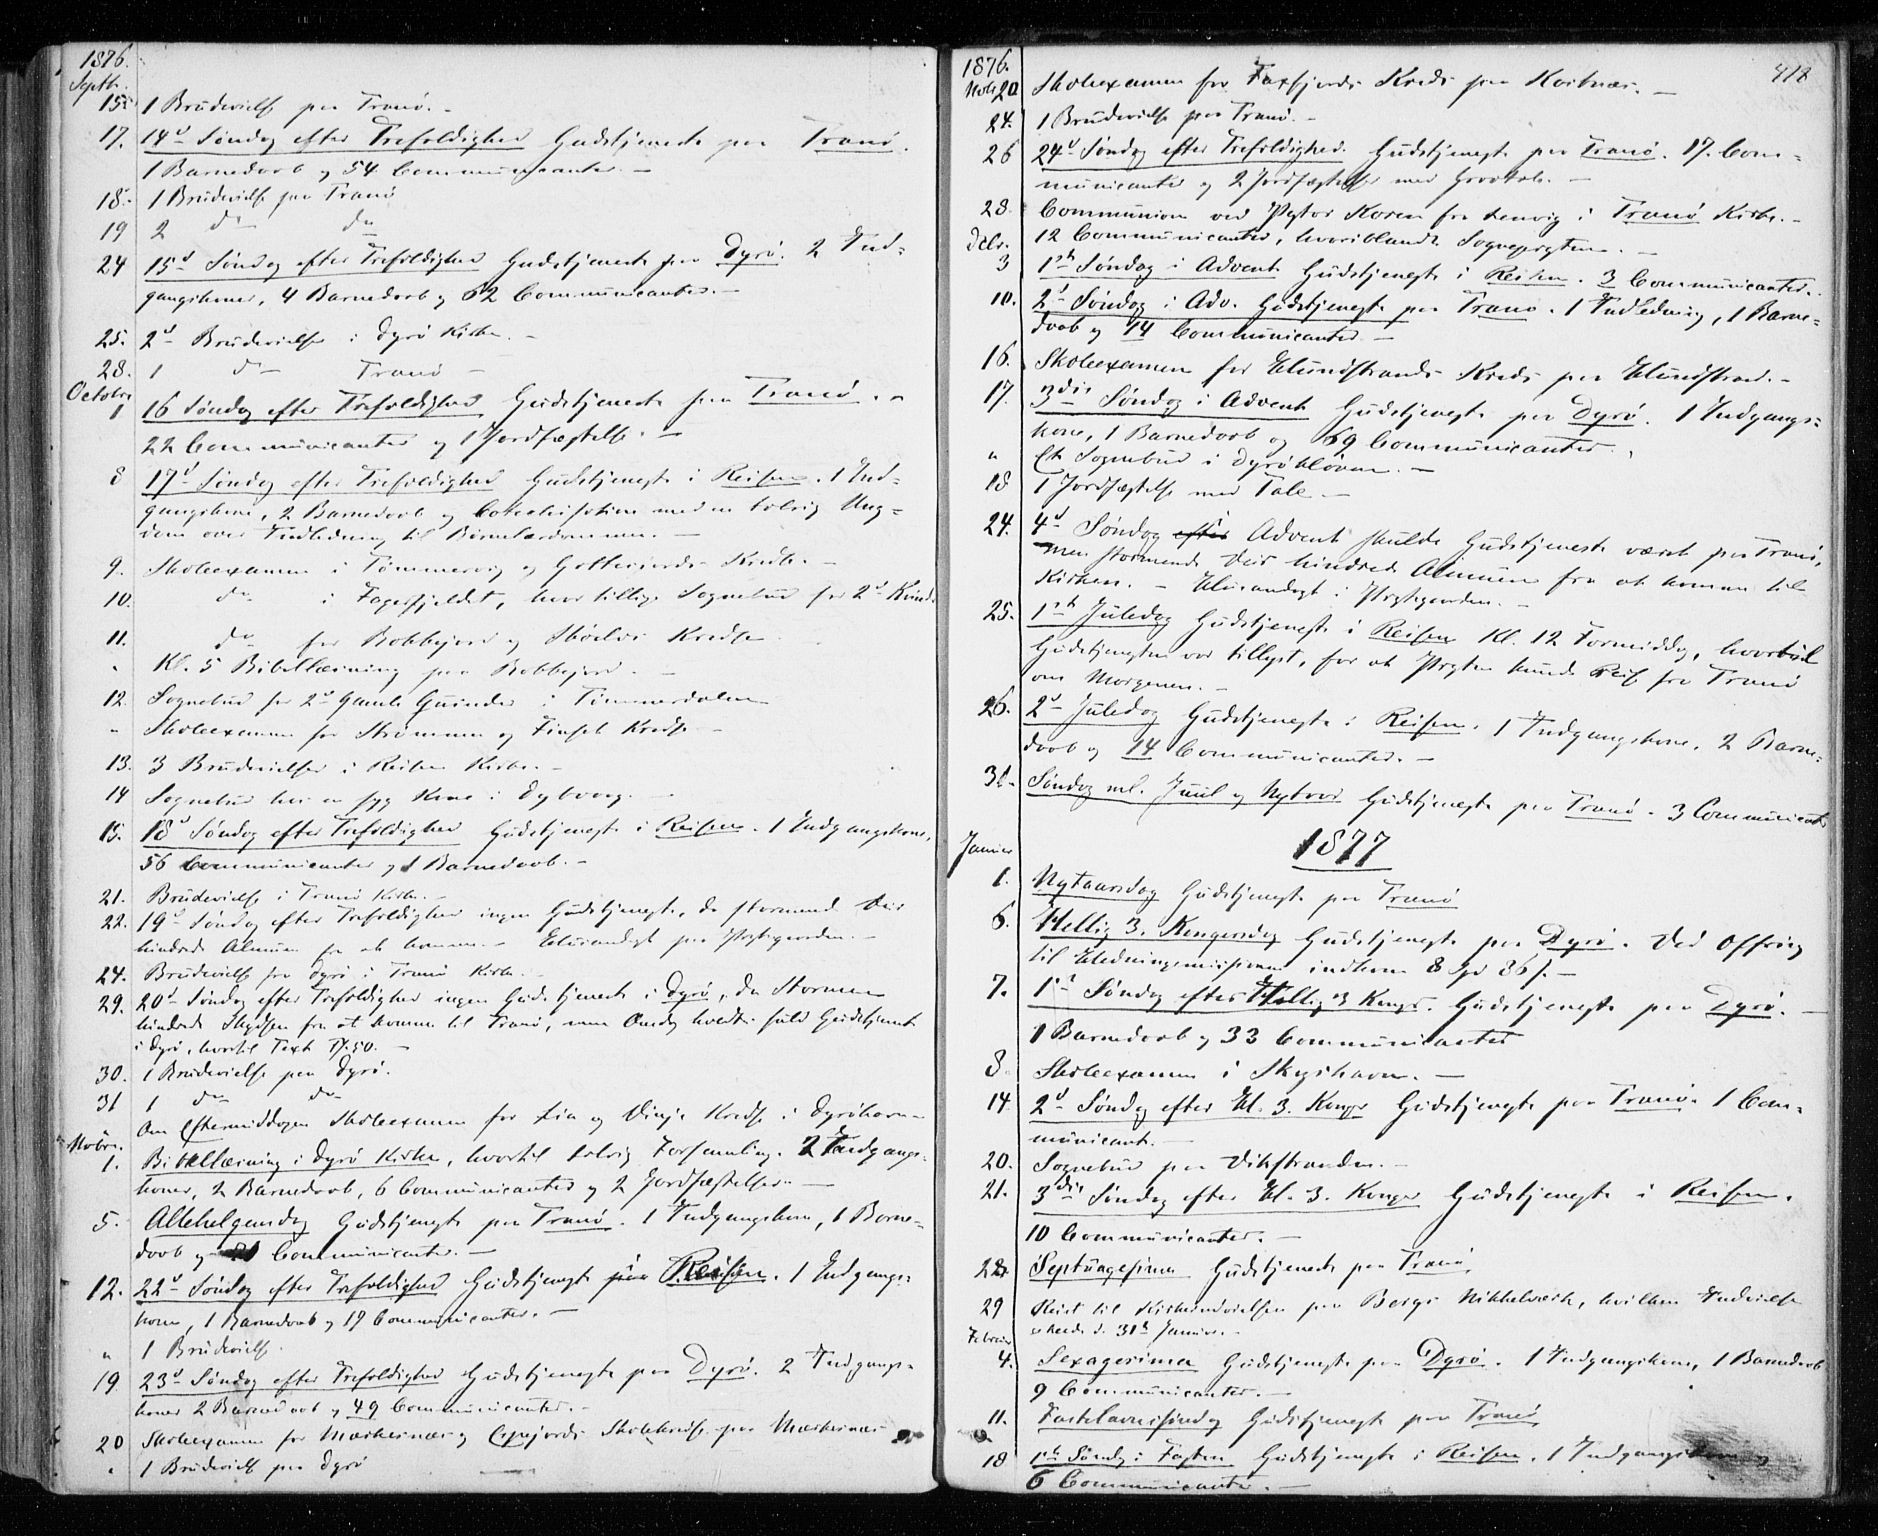 1876.
Septbr.
15. 1 Brudevielse paa Tranö. -
17. 14d Söndag efter Trefoldighed Gudstjeneste paa Tranö.
1 Barnedaab og 54 Communicanter. -
18. 1 Brudevielse paa Tranö
19 2 do do
24 15d Söndag efter Trefoldighed Gudstjeneste paa Dyrö. 2 Ind-
gangskoner, 4 Barnedaab og 62 Communicanter. -
25. 2d Brudevielser i Dyrö Kirke. -
28. 1 do Tranö -
Octobr.
1 16 Söndag efter Trefoldighed Gudstjeneste paa Tranö. -
22 Communicanter og 1 Jordfæstelse. -
8 17d Söndag efter Trefoldighed Gudstjeneste i Reisen. 1 Ind-
gangskone, 2 Barnedaab og Catechisation med en talrig Ung-
dom over Indledning til Börnelærdommen. -
9. Skoleexamen i Tömmervig og Kredse. -
10. do i Fagerfjeldet, hvor tillige Sognebud for 2d Kvinder
11. do for Bobbejord og Kredse
" Kl. 5 Bibellæsning paa Bobbejord. -
12. Sognebud for 2d gamle Quinder i Tömmerdalen
" Skoleexamen for Strömmen og Finsæt Kredse -
13. 3 Brudevielser i Reisen Kirke. -
14 Sognebud hos en syg Kone i Dybvaag. -
15. 18d Söndag efter Trefoldighed Gudstjeneste i Reisen. 1 Indgangskone,
56 Communicanter og 1 Barnedaab. -
21. Brudevielse i Tranö Kirke. -
22. 19d Söndag efter Trefoldighed ingen Gudstjeneste, da stormend Veir
hindrede Almuen fra at komme. - Huusandagt paa Præstegaarden. -
24. Brudevielse fra Dyrö i Tranö Kirke. -
29. 20d Söndag efter Trefoldighed ingen Gudstjeneste i Dyrö, da Stormen
hindrede Skydsen fra at komme til Tranö, men Onsdag holdtes fuld Gudstjeneste
i Dyrö, hvortil Text -
30. 1 Brudevielse paa Dyrö.
31 1 do do
Om Eftermiddagen Skoleexamen for Lia og Vinje Kredse i Dyröhavn -
Novbr.
1. Bibellæsning i Dyrö Kirke, hvortil talrig Forsamling. 2 Indgangs-
koner, 2 Barnedaab, 6 Communicanter og 2 Jordfæstelser. -
5. Allehelgensdag Gudstjeneste paa Tranö. 1 Indgangskone, 1 Barne-
daab og 21 Communicanter. -
12. 22d Söndag efter Trefoldighed Gudstjeneste paa Reisen. 1 Indgangs-
kone, 1 Barnedaab og 19 Communicanter. -
" 1 Brudevielse.
19 23d Söndag efter Trefoldighed Gudstjeneste paa Dyrö. 2 Indgangs-
koner 2 Barnedaab og 49 Communicanter. -
20 Skoleexamen for og Skolekredse paa
" 1 Brudevielse paa Dyrö
1876.
418
Novb. 20 Skoleexamen for Faxfjords Kreds paa Kvitnæs. -
24. 1 Brudevielse paa Tranö. -
26 24d Söndag efter Trefoldighed. Gudstjeneste paa Tranö. 17 Com-
municanter og 2 Jordfæstelser med Gravtale. -
28. Communion ved Pastor Koren fra Lenvig i Tranö Kirke. -
12 Communicanter, hvoriblandt Sognepræsten. -
Decbr.
3 1ste Söndag i Advent Gudstjeneste i Reisen. 3 Communicanter.
10. 2d Söndag i Adv. Gudstjeneste paa Tranö. 1 Indledning, 1 Barne-
daab og 14 Communicanter. -
16. Skoleexamen for Kreds paa -
17. 3die Söndag i Advent Gudstjeneste paa Dyrö. 1 Indgangs-
kone, 1 Barnedaab og 69 Communicanter. -
" Et Sognebud i Dyröklöven. -
18 1 Jordfæstelse med Tale. -
24. 4d Söndag efter i Advent skulde Gudstjeneste været paa Tranö,
men stormende Veir hindrede Almuen fra at komme til
Kirken. - Huusandagt i Præstegaarden. -
25. 1ste Juledag Gudstjeneste i Reisen Kl. 12 Formiddag, hvortil
Gudstjenesten var tillyst, for at Præsten kunde reise fra Tranö
om Morgenen. -
26. 2d Juledag Gudstjeneste i Reisen. 1 Indgangskone, 2 Barne-
daab og 14 Communicanter. -
31. Söndag ml. Juul og Nytaar Gudstjeneste paa Tranö. 3 Communicant.
1877
Januar
1. Nytaarsdag Gudstjeneste paa Tranö
6. Hellig 3. Kongersdag Gudstjeneste paa Dyrö. Ved Offring
til Hedningemissionen indkom 8 Spd 86 s. -
7. 1st Söndag efter Hellig 3 Konger. Gudstjeneste paa Dyrö. -
1 Barnedaab og 33 Communicanter
8. Skoleexamen i Skogshavn. -
14. 2d Söndag efter Hl. 3. Konger Gudstjeneste paa Tranö. 1 Com-
municant. -
20. Sognebud paa Vikstranden. -
21. 3die Söndag efter Hl. 3. Konger Gudstjeneste i Reisen.
10 Communicanter. -
28. Septuagesima Gudstjeneste paa Tranö.
29 Reist til Kirkeindvielsen paa Bergs Nikkelværk, hvilken Indvielse
skede d. 31te Januar. -
Februar
4. Sexagesima Gudstjeneste paa Dyrö. 1 Indgangskone, 1 Barnedaab
9 Communicanter. -
11. Fastelavnssöndag Gudstjeneste paa Tranö
18 1ste Söndag i Fasten Gudstjeneste i Reisen. 1 Indgangskone og
6 Communicanter. -